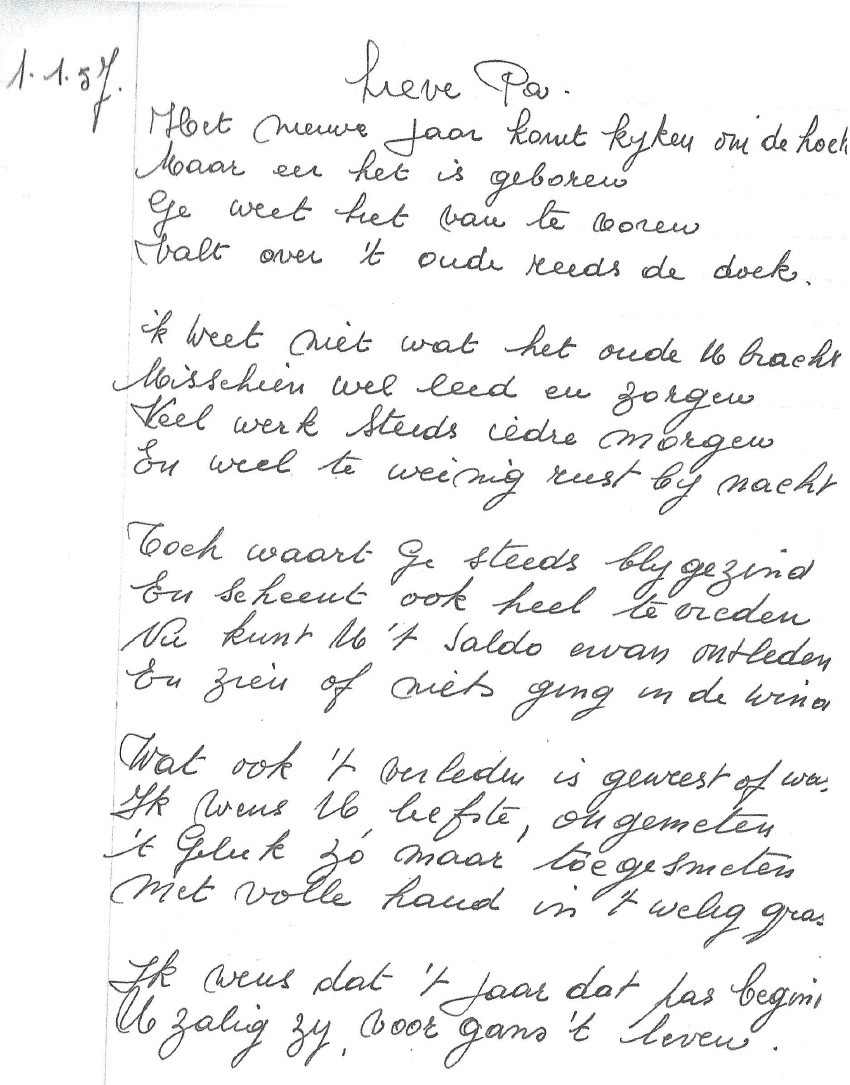 1.1.57.
Lieve Pa.
Het nieuwe jaar komt kyken om de hoek
Maar eer het is geboren
Ge weet het van te voren
Valt over 't oude reeds de doek.
ik weet niet wat het oude U bracht
Misschien wel leed en zorgen
Veel werk steeds iedre morgen
En veel te weinig rust by nacht
Toch waart Ge steeds blygezind
En scheent ook heel tevreden
Nu kunt U 't saldo ervan ontleden
En zien of niets ging in de wind
Wat ook 't verleden is geweest of was
Ik wens U liefste, ongemeten
't Geluk zó maar toegesmeten
Met volle hand in 't welig gras
Ik wens dat 't jaar dat pas begint
U zalig zy, voor gans 't leven.